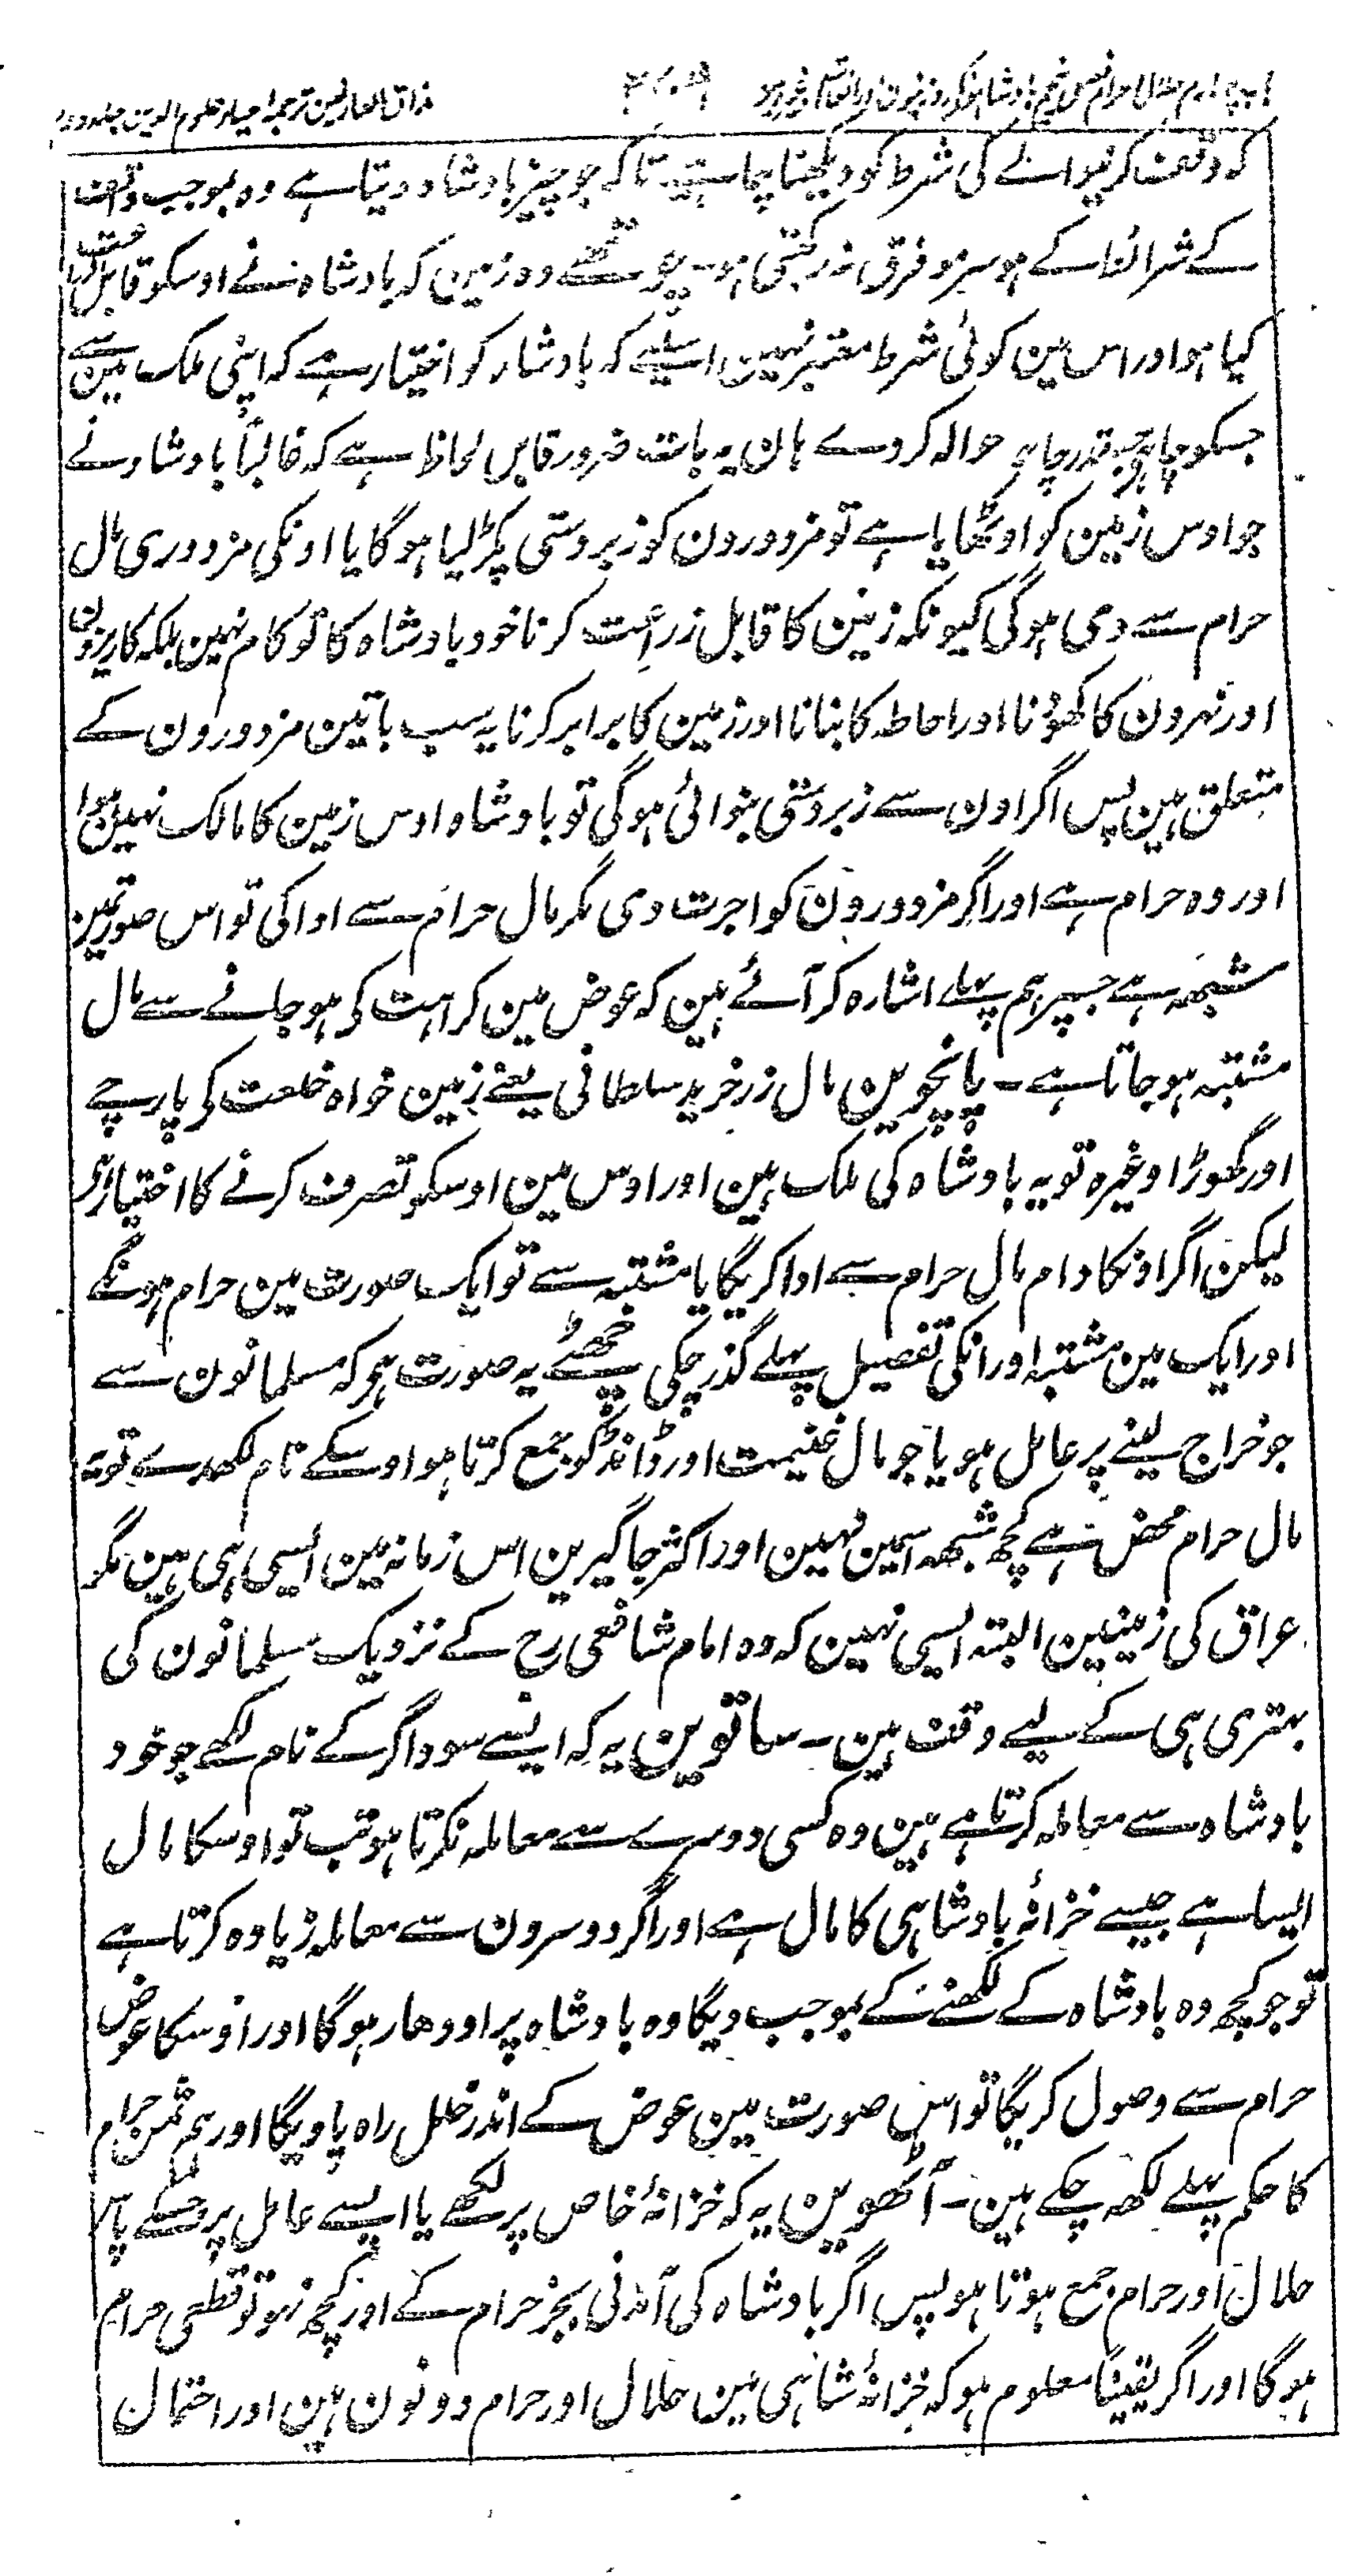 مذاق العارفین ترجمہ احیاء علوم الدین جلد دوم
کہ وقف کرنیوالے کی شرط کو دیکھنا چاہیے تاکہ جو چیز بادشاہ دیتا ہے وہ بموجب وقف
کے شرائط کے ہو سرمو فرق نہ رکھتی ہو۔ چوتھے وہ زمین کہ بادشاہ نے اوسکو قابل زراعت
کیا ہو اور اس مین کوئی شرط معتبر نہین اسلیے کہ بادشاہ کو اختیار ہے کہ اپنی ملک مین سے
جسکو چاہے جسقدر چاہے حوالہ کردے ہان یہ بات ضرور قابل لحاظ ہے کہ غالباً بادشاہ نے
جو اوس زمین کو اوٹھایا ہے تو مزدورون کو زبردستی پکڑ لیا ہوگا یا اونکی مزدوری مال
حرام سے دی ہوگی کیونکہ زمین کا قابل زراعت کرنا خود بادشاہ کا تو کام نہین بلکہ کاریزون
اور نہرون کا کھودنا اور احاطہ کا بنانا اور زمین کا برابر کرنا یہ سب باتین مزدورون کے
متعلق ہین پس اگر اون سے زبردستی بنوائی ہوگی تو بادشاہ اوس زمین کا مالک نہین ہوا
اور وہ حرام ہے اور اگر مزدورون کو اجرت دی مگر مال حرام سے ادا کی تو اس صورتمین
شبھہ ہے جسپر ہم پہلے اشارہ کر آئے ہین کہ عوض مین کراہت کی ہوجانے سے مال
مشتبہ ہوجاتا ہے۔ پانچوین مال زرخرید سلطانی یعنے زمین خواہ خلعت کی پارچے
اور گھوڑا وغیرہ تو یہ بادشاہ کی ملک ہین اور اوس مین اوسکو تصرف کرنے کا اختیار ہی
لیکن اگر اونکا دام مال حرام سے ادا کریگا یا مشتبہ سے تو ایک صورت مین حرام ہونگے
اور ایک مین مشتبہ اور انکی تفصیل پہلے گذر چکی چھٹے یہ صورت ہی کہ مسلمانون سے
جو خراج لینے پر عامل ہو یا جو مال غنیمت اور ڈانڈ کو جمع کرتا ہو اوسکے نام لکھدے تو یہ
مال حرام محض ہے کچھ شبھہ اسمین نہین اور اکثر جاگیرین اس زمانہ مین ایسی ہی ہین مگر
عراق کی زمینین البتہ ایسی نہین کہ وہ امام شافعی رح کے نزدیک مسلمانون کی
بہتری ہی کے لیے وقف ہین۔ ساتوین یہ کہ ایسے سوداگر کے نام لکھے جو خود
بادشاہ سے معاملہ کرتا ہے پس وہ کسی دوسرے سے معاملہ نکرتا ہو تب تو اوسکا مال
ایسا ہے جیسے خزانۂ بادشاہی کا مال ہے اور اگر دوسرون سے معاملہ زیادہ کرتا ہے
تو جو کچھ وہ بادشاہ کے لکھنے کے بموجب دیگا وہ بادشاہ پر اودھار ہوگا اور اوسکا عوض
حرام سے وصول کریگا تو اس صورت مین عوض کے اندر خلل راہ پاویگا اور ہم ثمن حرام
کا حکم پہلے لکھ چکے ہین۔ آٹھوین یہ کہ خزانۂ خاص پر لکھے یا ایسے عامل پر جسکے پاس
حلال اور حرام جمع ہوتا ہو پس اگر بادشاہ کی آمدنی بجز حرام کے اور کچھ نہو تو قطعی حرام
ہوگا اور اگر یقیناً معلوم ہو کہ خزانۂ شاہی مین حلال اور حرام دونون ہین اور احتمال